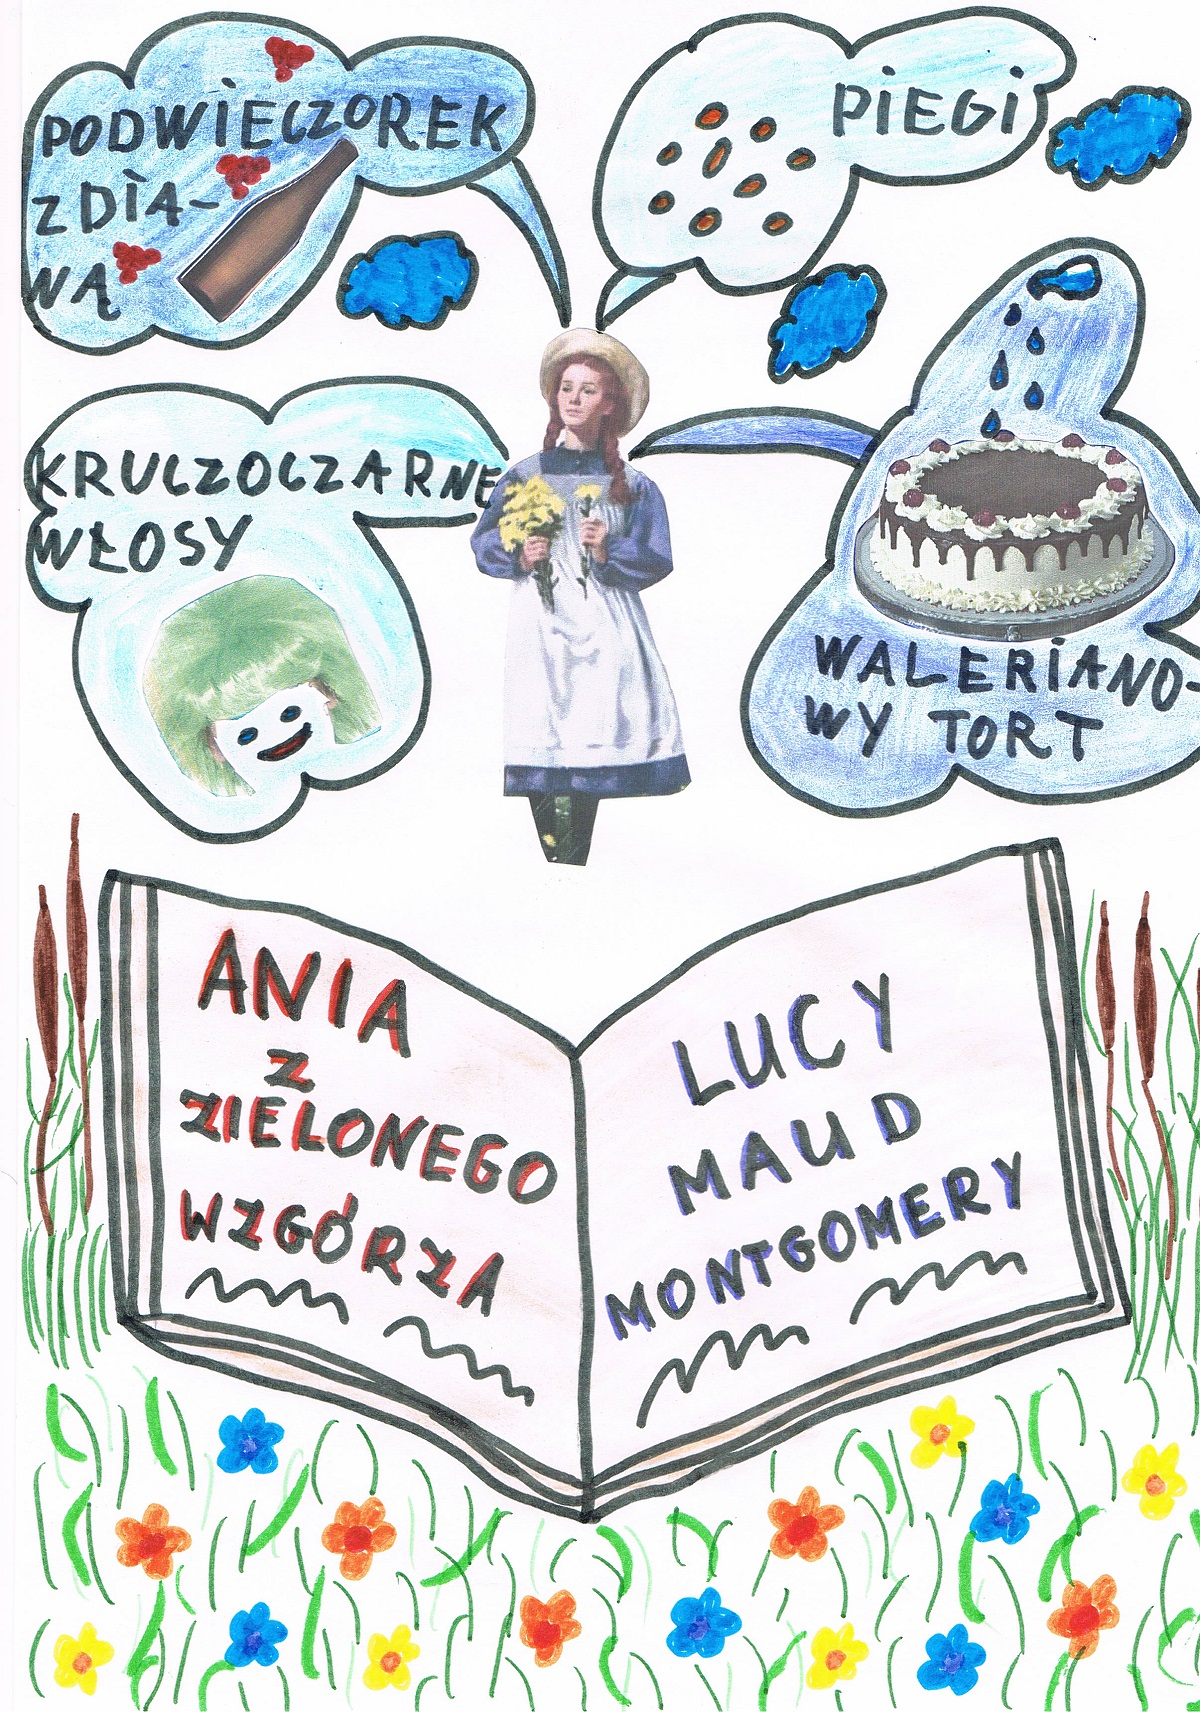 PODWIECZOREK
Z DIA-
NĄ
PIEGI
KRUCZOCZARNE
WŁOSY
WALERIANO-
WY TORT
ANIA
Z
ZIELONEGO
WZGÓRZA
LUCY
MAUD
MONTGOMERY